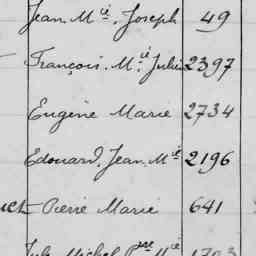 Jean Mie. Joseph 49
François. M.ie Julien 2397
Eugène Marie 2734
Edouard, Jean, Mie 2196
uet Pierre Marie 641
Michel Pre Mie